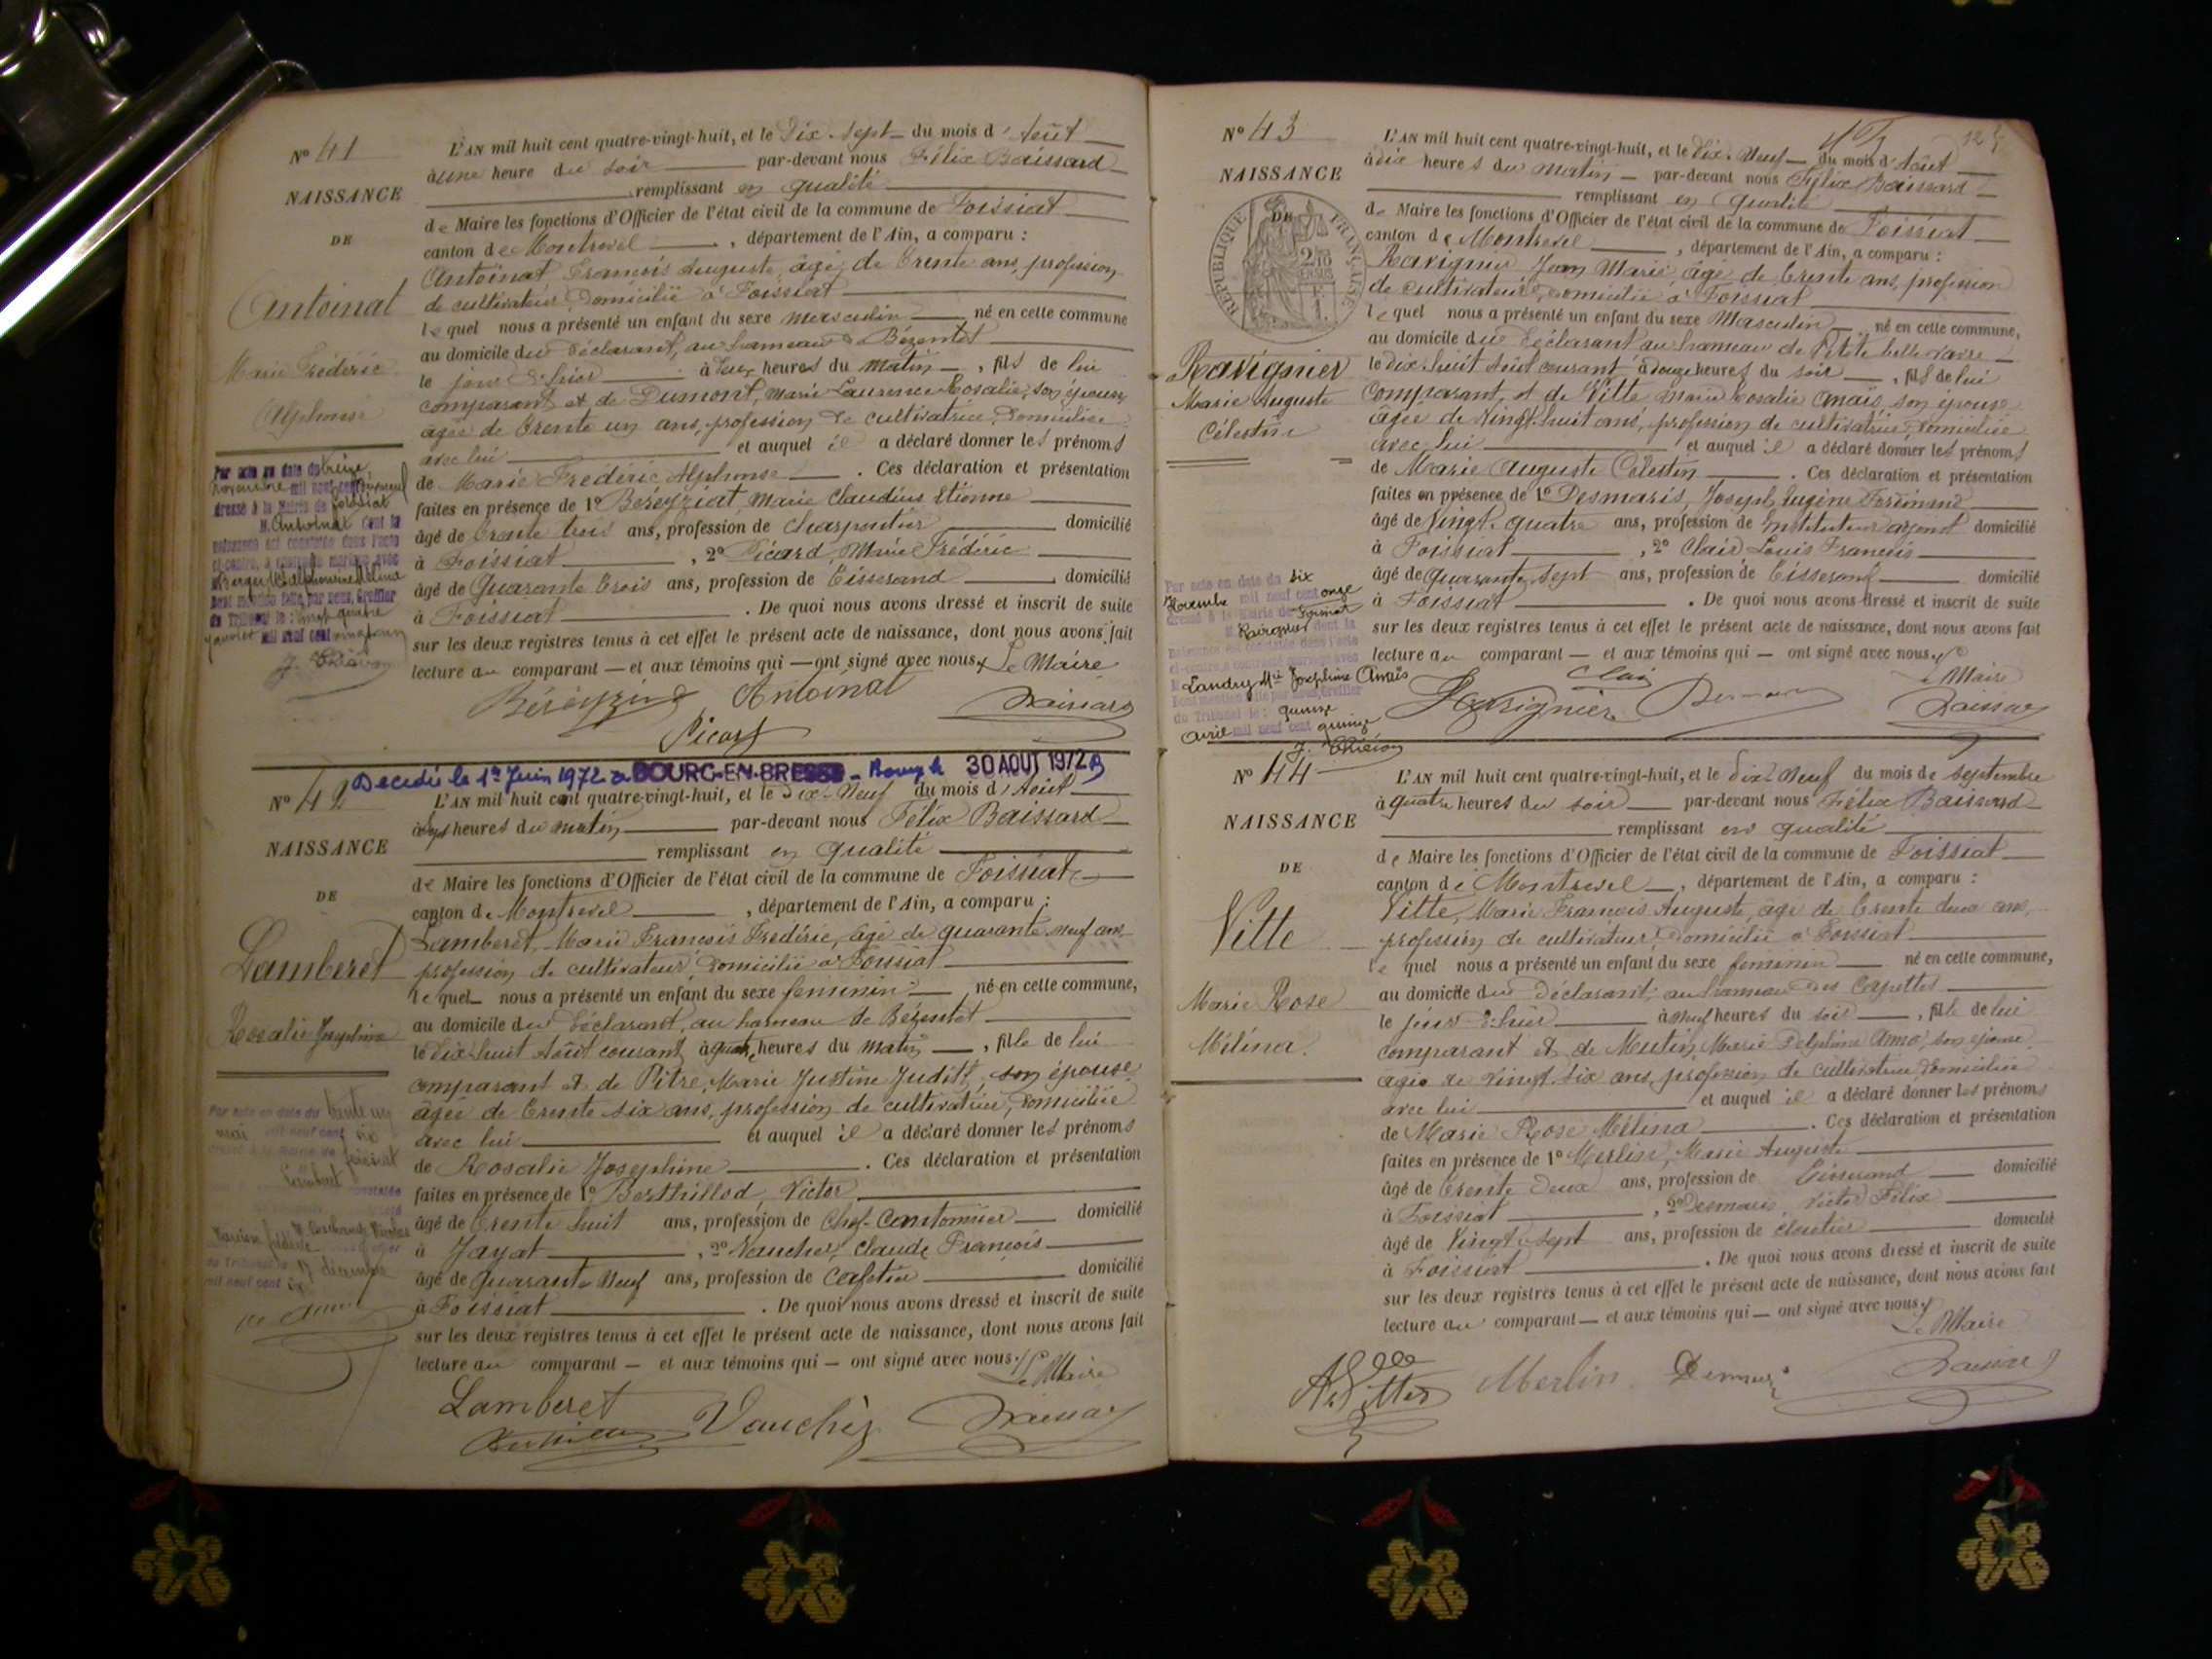 N° 41
NAISSANCE
DE
Antoinat
Marie Frédéric
Alphonse
L'AN mil huit cent quatre-vingt-huit, et le Dix-Sept du mois d'Août
à une heure du soir par-devant nous Félix Baissard
remplissant en qualité
de Maire les fonctions d'Officier de l'état civil de la commune de Foissiat
canton de Montrevel, département de l'Ain, a comparu :
Antoinat François Auguste, âgé de trente ans, profession
de cultivateur, domicilié à Foissiat
lequel nous a présenté un enfant du sexe masculin né en cette commune
au domicile du déclarant, au hameau de Bézentet
le jour d'hier à heures du matin, fils de lui
comparant et de Dumont, Marie Laurence Rosalie, son épouse,
âgée de trente un ans, profession de cultivatrice, domiciliée
avec lui et auquel il a déclaré donner les prénoms
de Marie Frédéric Alphonse. Ces déclaration et présentation
faites en présence de 1° Béréyziat, Marie Claudius Etienne
âgé de trente ans, profession de charpentier domicilié
à Foissiat, 2° Picard, Marie Frédéric
âgé de quarante trois ans, profession de Tisserand domicilié
à Foissiat. De quoi nous avons dressé et inscrit de suite
sur les deux registres tenus à cet effet le présent acte de naissance, dont nous avons fait
lecture au comparant et aux témoins qui ont signé avec nous. Le Maire
Béréyziat Antoinat Baissard
Picard
Par acte en date du treize
novembre mil neuf cent
dressé à la Mairie de Foissiat
M. Antoinat dont la
naissance est constatée dans l'acte
ci-contre, a contracté mariage avec
Dont mention faite par nous, Greffier
du Tribunal le : vingt quatre
janvier mil neuf cent
Décédée le 1er Juin 1972 à BOURG-EN-BRESSE - Bourg le 30 AOUT 1972
N° 42
NAISSANCE
DE
Lamberet
Rosalie Joséphine
L'AN mil huit cent quatre-vingt-huit, et le Dix-Neuf du mois d'Août
à sept heures du matin par-devant nous Félix Baissard
remplissant en qualité
de Maire les fonctions d'Officier de l'état civil de la commune de Foissiat
canton de Montrevel, département de l'Ain, a comparu :
Lamberet, Marie François Frédéric, âgé de quarante neuf ans
profession de cultivateur, domicilié à Foissiat
lequel nous a présenté un enfant du sexe féminin né en cette commune,
au domicile du déclarant, au hameau de Bézentet
le dix-huit Août courant à quatre heures du matin, fille de lui
comparant et de Pitre, Marie Justine Judith, son épouse
âgée de trente six ans, profession de cultivatrice, domiciliée
avec lui et auquel il a déclaré donner les prénoms
de Rosalie Joséphine. Ces déclaration et présentation
faites en présence de 1° Berthillod, Victor
âgé de trente huit ans, profession de Chef-Cantonnier domicilié
à Jayat, 2° Vaucher, Claude François
âgé de quarante neuf ans, profession de Cafetier domicilié
à Foissiat. De quoi nous avons dressé et inscrit de suite
sur les deux registres tenus à cet effet le présent acte de naissance, dont nous avons fait
lecture au comparant et aux témoins qui ont signé avec nous. Le Maire
Lamberet Vaucher Baissard
Par acte en date du trente un
mai mil neuf cent six
Foissiat
Lamberet
17 décembre
mil neuf cent
N° 43
NAISSANCE
DE
RÉPUBLIQUE FRANÇAISE
Ravignier
Marie Auguste
Célestin
L'AN mil huit cent quatre-vingt-huit, et le Dix-Neuf du mois d'Août
à dix heures du matin par-devant nous Félix Baissard
remplissant en qualité
de Maire les fonctions d'Officier de l'état civil de la commune de Foissiat
canton de Montrevel, département de l'Ain, a comparu :
Ravignier Jean Marie âgé de trente ans, profession
de cultivateur, domicilié à Foissiat
lequel nous a présenté un enfant du sexe Masculin né en cette commune,
au domicile du déclarant au hameau de Petite
le dix-huit Août courant à douze heures du soir, fils de lui
comparant et de Vitte Marie Rosalie Anaïs, son épouse
âgée de vingt-huit ans, profession de cultivatrice, domiciliée
avec lui et auquel il a déclaré donner les prénoms
de Marie Auguste Célestin. Ces déclaration et présentation
faites en présence de 1° Desmaris, Joseph Eugène Ferdinand
âgé de vingt-quatre ans, profession de Instituteur adjoint domicilié
à Foissiat, 2° Clair Louis François
âgé de quarante sept ans, profession de Tisserand domicilié
à Foissiat. De quoi nous avons dressé et inscrit de suite
sur les deux registres tenus à cet effet le présent acte de naissance, dont nous avons fait
lecture au comparant et aux témoins qui ont signé avec nous.
Clair Le Maire
Ravignier Baissard
Par acte en date du six
mil neuf cent onze
dressé à la Mairie de Foissiat
Ravignier dont la
naissance est constatée dans l'acte
ci-contre, a contracté mariage avec
Landry Mie Joséphine Anaïs
Dont mention faite par nous, Greffier
du Tribunal le : quinze
Avril mil neuf cent quinze
N° 44
NAISSANCE
DE
Vitte
Marie Rose
Mélina
L'AN mil huit cent quatre-vingt-huit, et le dix-neuf du mois de septembre
à quatre heures du soir par-devant nous Félix Baissard
remplissant en qualité
de Maire les fonctions d'Officier de l'état civil de la commune de Foissiat
canton de Montrevel, département de l'Ain, a comparu :
Vitte, Marie François Auguste, âgé de trente deux ans,
profession de cultivateur, domicilié à Foissiat
lequel nous a présenté un enfant du sexe féminin né en cette commune,
au domicile du déclarant, au hameau des Capettes
le jour d'hier à neuf heures du soir, fille de lui
comparant et de Mutin, Marie Delphine son épouse
âgée de vingt-six ans, profession de cultivatrice, domiciliée
avec lui et auquel il a déclaré donner les prénoms
de Marie Rose Mélina. Ces déclaration et présentation
faites en présence de 1° Merlin, Marie Auguste
âgé de trente deux ans, profession de Tisserand domicilié
à Foissiat, 2° Desmaris, Victor Félix
âgé de vingt-sept ans, profession de cloutier domicilié
à Foissiat. De quoi nous avons dressé et inscrit de suite
sur les deux registres tenus à cet effet le présent acte de naissance, dont nous avons fait
lecture au comparant et aux témoins qui ont signé avec nous.
Le Maire
Vitte Merlin Baissard